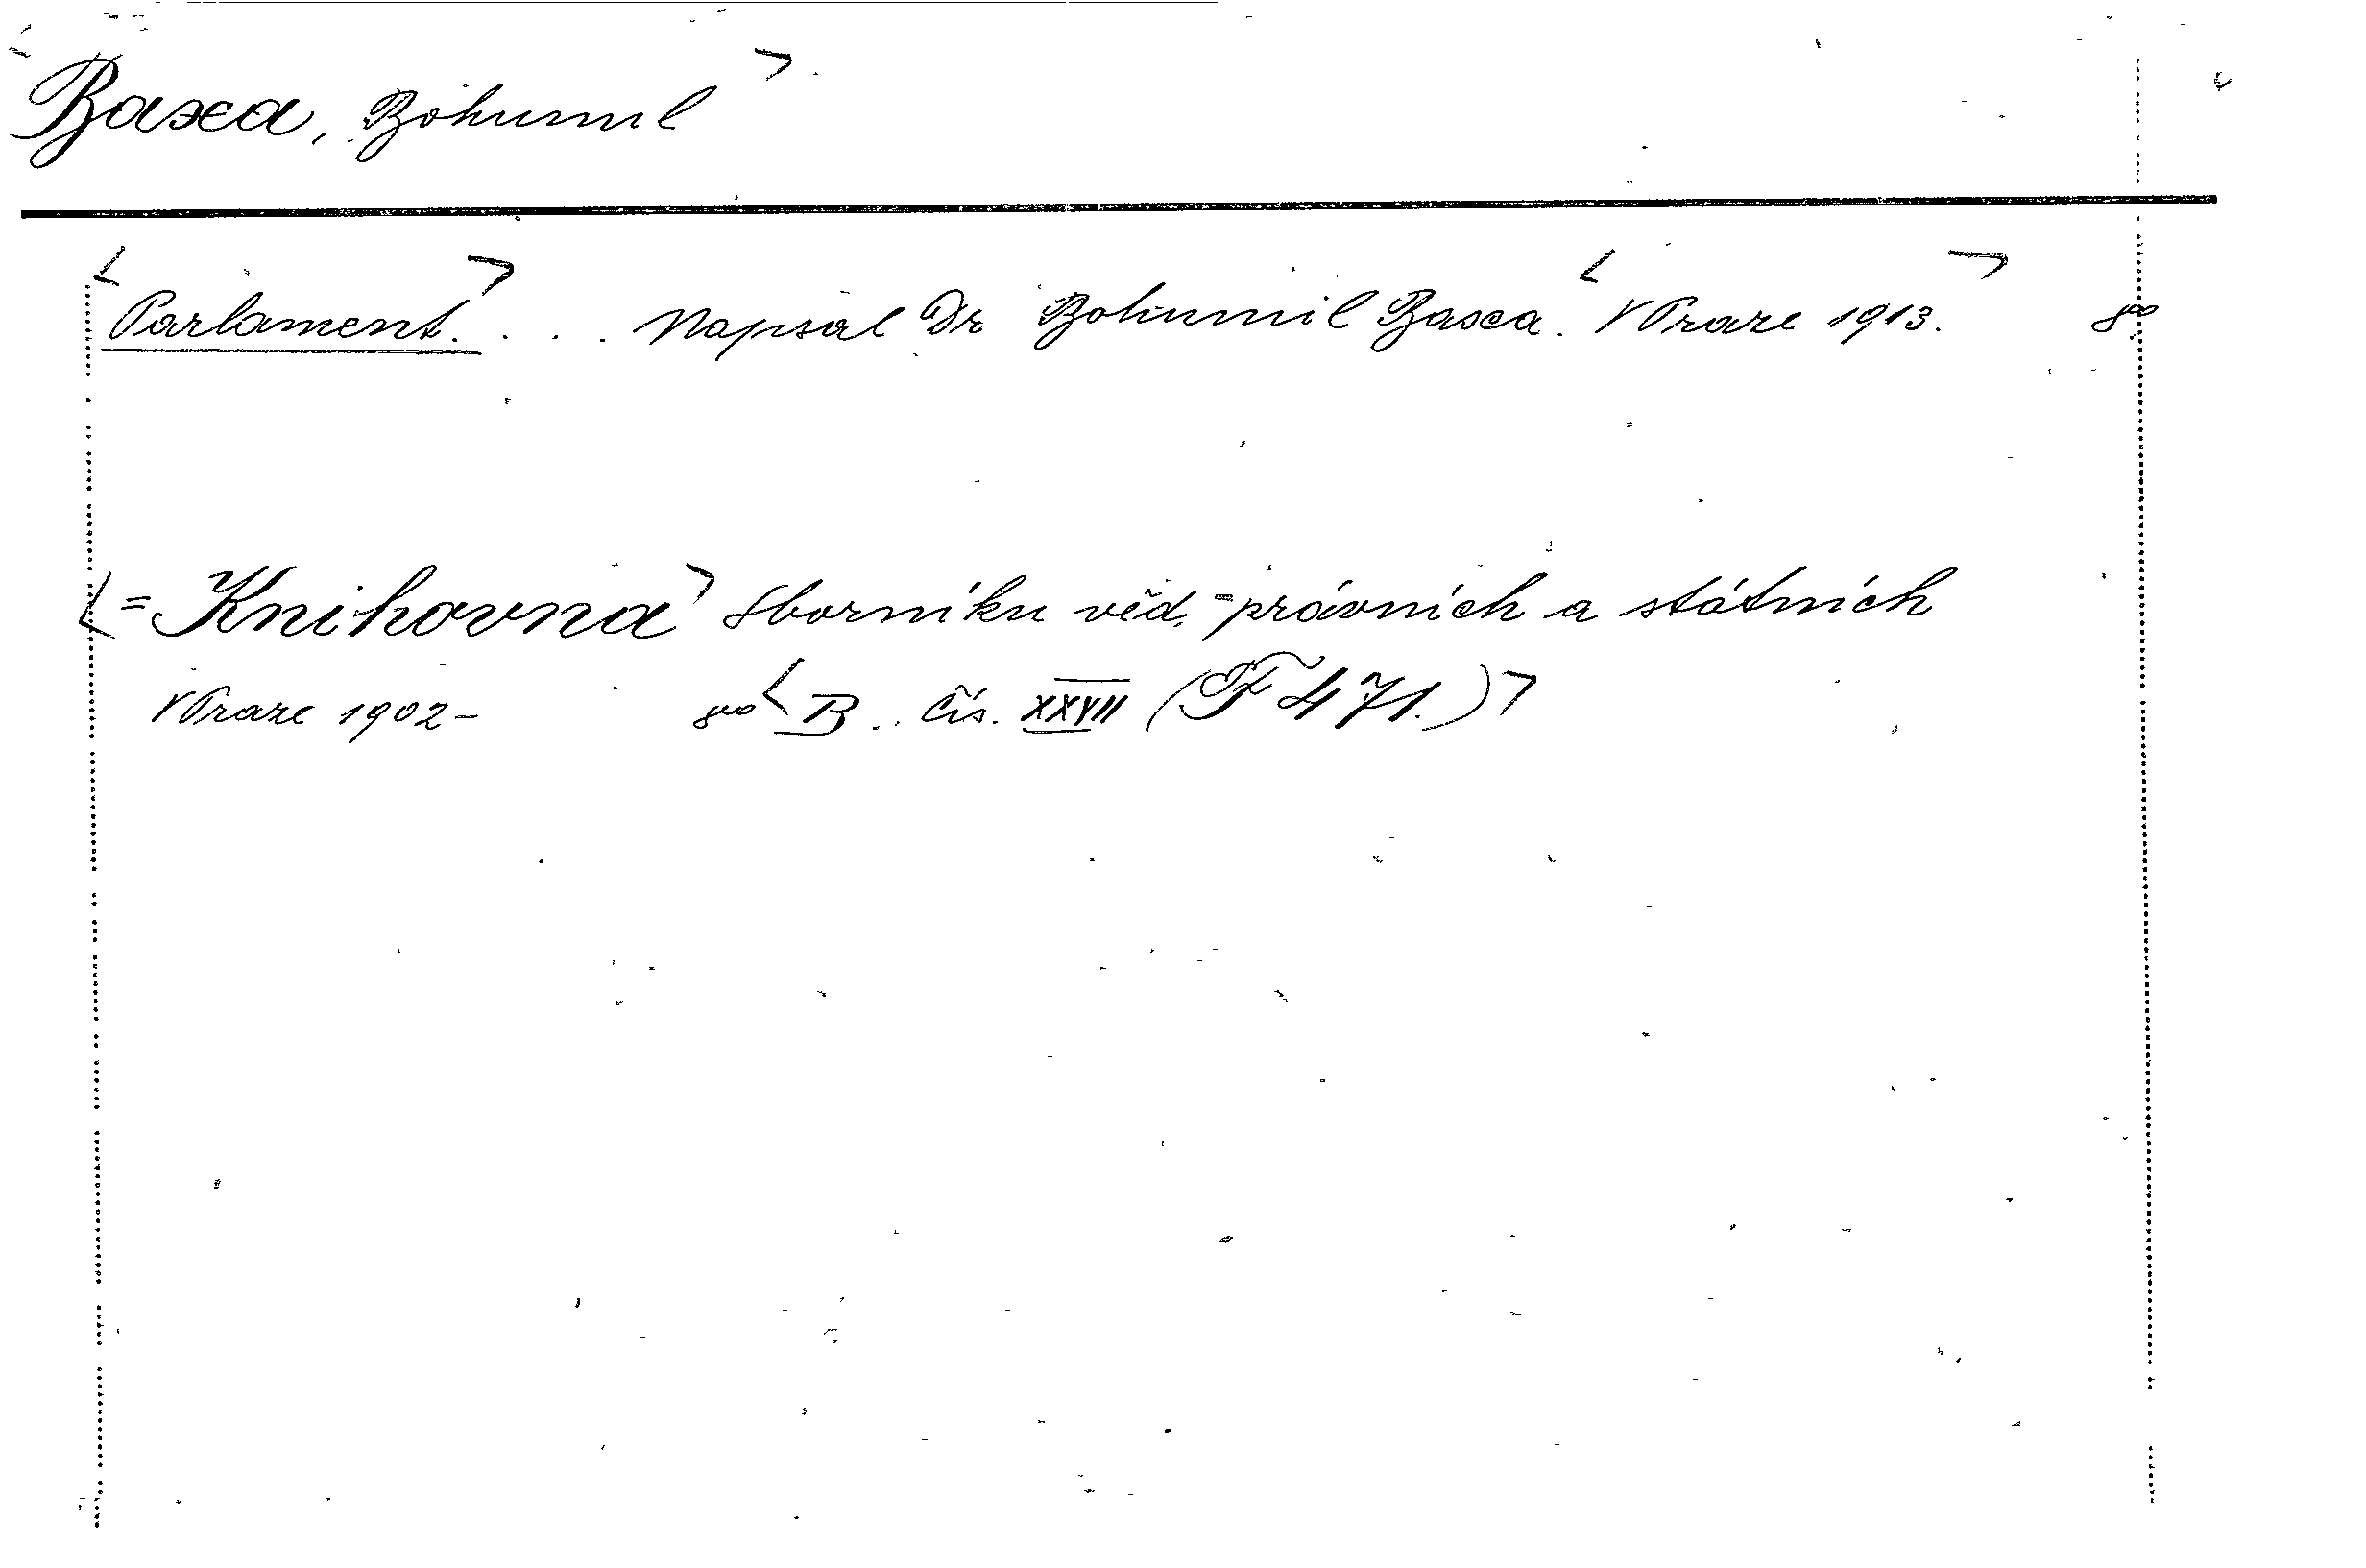 Baxa, Bohumil
Parlament. . . . Napsal Dr Bohumil Baxa. V Praze 1913. 8vo
= Knihovna Sborníku věd. =právních a státních
V Praze 1902– 8vo B.. Čís. XXVII (F 471.)